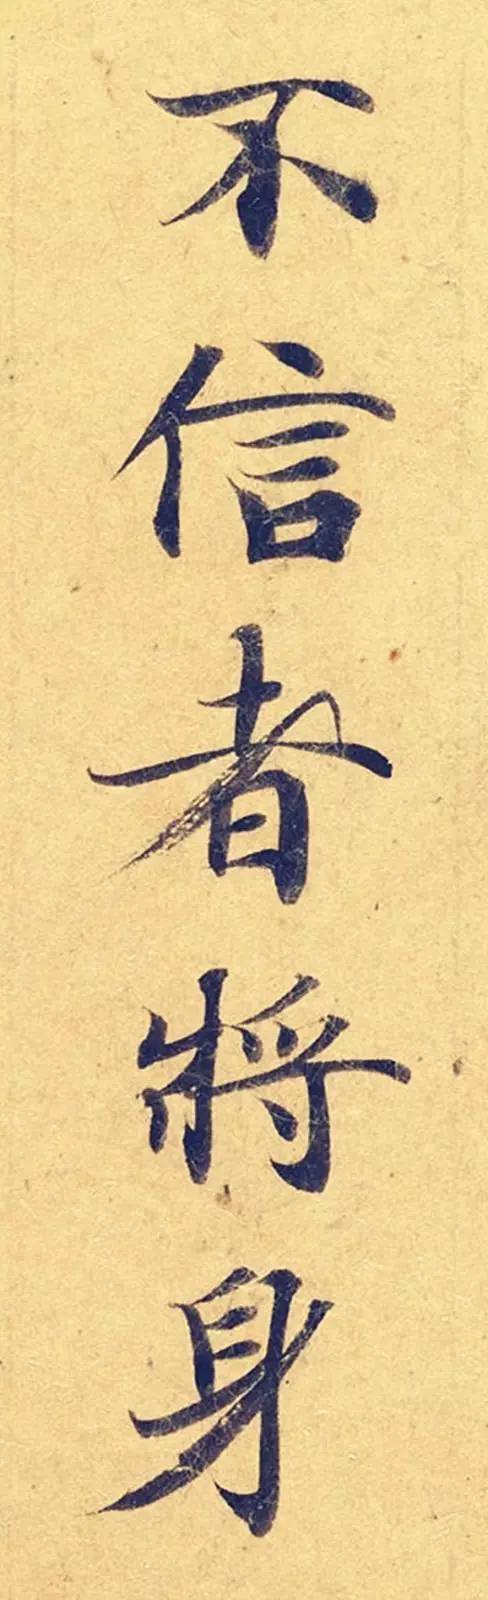 不信者將身